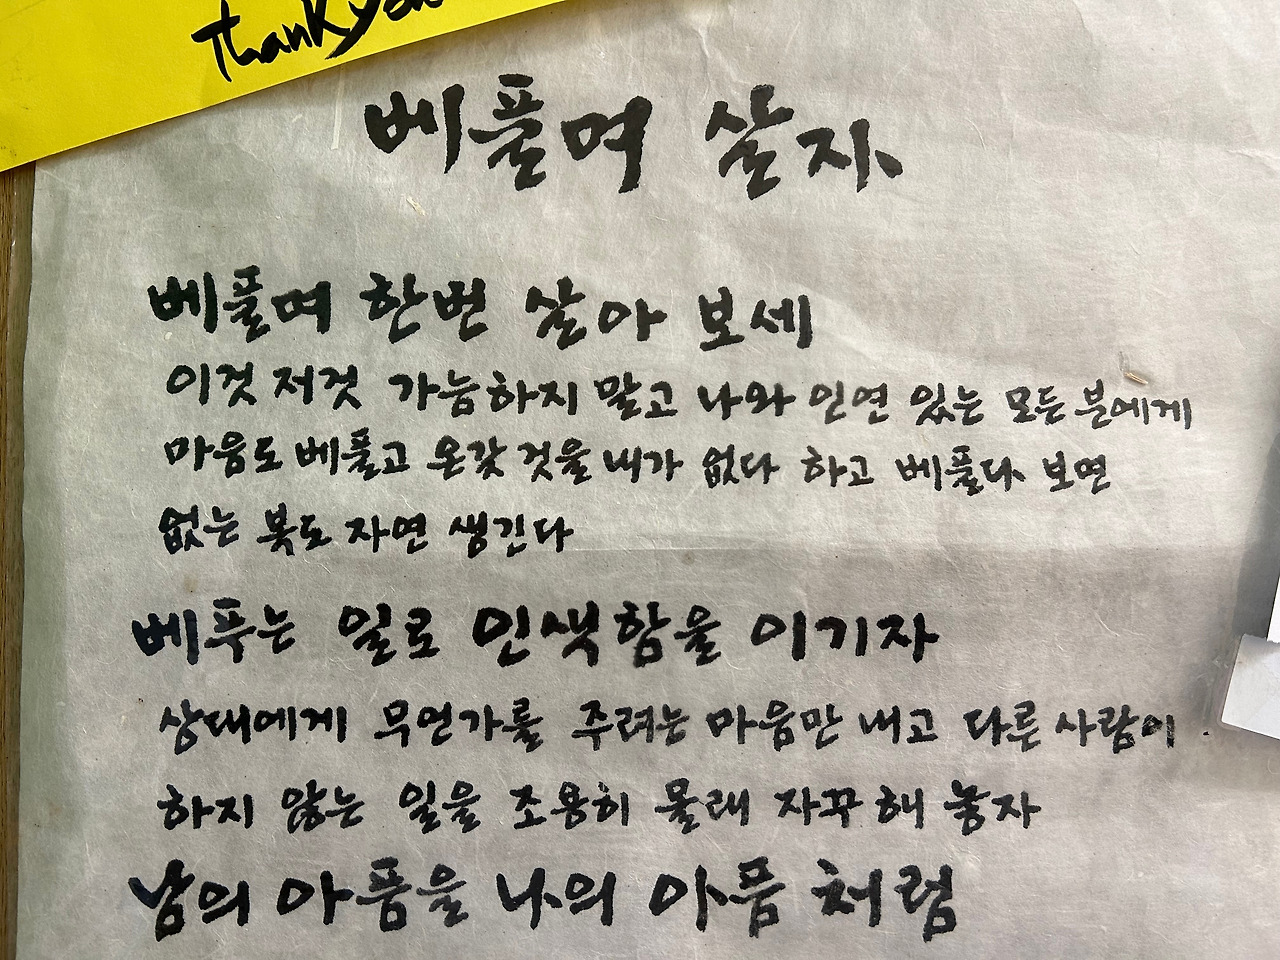 Thank you
베풀며 살자
베풀며 한번 살아 보세
이것 저것 가늠하지 말고 나와 인연 있는 모든 분에게
마음도 베풀고 온갖 것을 내가 없다 하고 베풀다 보면
없는 복도 자연 생긴다
베푸는 일로 인색함을 이기자
상대에게 무언가를 주려는 마음만 내고 다른 사람이
하지 않는 일을 조용히 몰래 자꾸 해 놓자
남의 아픔을 나의 아픔 처럼